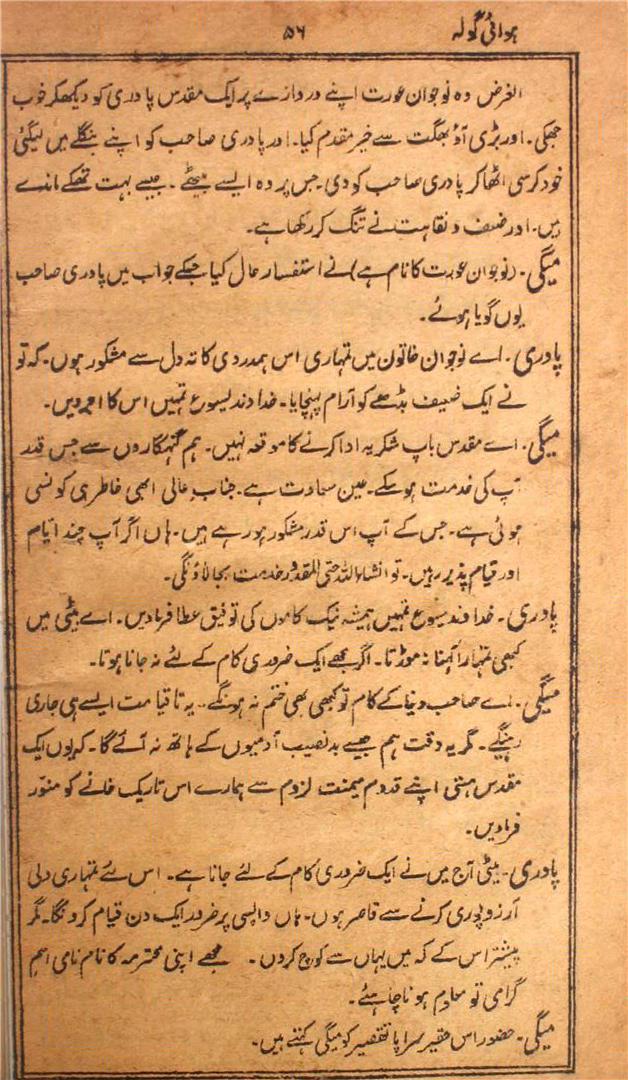 ہوائی گولہ
۵۶
الغرض وہ نوجوان عورت اپنے دروازے پر ایک مقدس پادری کو دیکھکر خوب
جھکی۔ اور بڑی آؤ بھگت سے خیر مقدم کیا۔ اور پادری صاحب کو اپنے بنگلے میں لیگئی
خود کرسی اٹھا کر پادری صاحب کو دی۔ جس پر وہ ایسے بیٹھے۔ جیسے بہت تھکے ماندے
ہیں۔ اور ضعیف و نقاہت نے تنگ کر رکھا ہے۔
میگی۔ (نوجوان عورت کا نام ہے) نے استفسار حال کیا جسکے جواب میں پادری صاحب
یوں گویا ہوئے۔
پادری۔ اے نوجوان خاتون میں تمہاری اس ہمدردی کا تہ دل سے مشکور ہوں۔ کہ تو
نے ایک ضعیف بڈھے کو آرام پہنچایا۔ خداوند یسوع تمہیں اس کا اجر دیں۔
میگی۔ اے مقدس باپ شکریہ ادا کرنے کا موقعہ نہیں۔ ہم گنہگاروں سے جس قدر
آپ کی خدمت ہو سکے۔ عین سعادت ہے۔ جناب عالی ابھی خاطر ہی کونسی
ہوئی ہے۔ جس کے آپ اس قدر مشکور ہو رہے ہیں۔ ہاں اگر آپ چند ایام
اور قیام پذیر رہیں۔ تو انشاءاللہ حتی المقدور خدمت بجا لاؤنگی۔
پادری۔ خداوند یسوع تمہیں ہمیشہ نیک کاموں کی توفیق عطا فرمادیں۔ اے بیٹی میں
کبھی تمہارا کہنا نہ موڑتا۔ اگر مجھے ایک ضروری کام کے لئے نہ جانا ہوتا۔
میگی۔ اے صاحب دنیا کے کام تو کبھی بھی ختم نہ ہونگے۔ یہ تا قیامت ایسے ہی جاری
رہینگے۔ مگر یہ وقت ہم جیسے بدنصیب آدمیوں کے ہاتھ نہ آئے گا۔ کہ یوں ایک
مقدس ہستی اپنے قدوم میمنت لزوم سے ہمارے اس تاریک خانے کو منور
فرمادیں۔
پادری۔ بیٹی آج میں نے ایک ضروری کام کے لئے جانا ہے۔ اس لئے تمہاری دلی
آرزو پوری کرنے سے قاصر ہوں۔ ہاں واپسی پر ضرور ایک دن قیام کرونگا۔ مگر
پیشتر اس کے کہ میں یہاں سے کوچ کروں۔ مجھے اپنی محترمہ کا نام نامی اسم
گرامی تو معلوم ہونا چاہئے۔
میگی۔ حضور اس حقیر سراپا تقصیر کو میگی کہتے ہیں۔